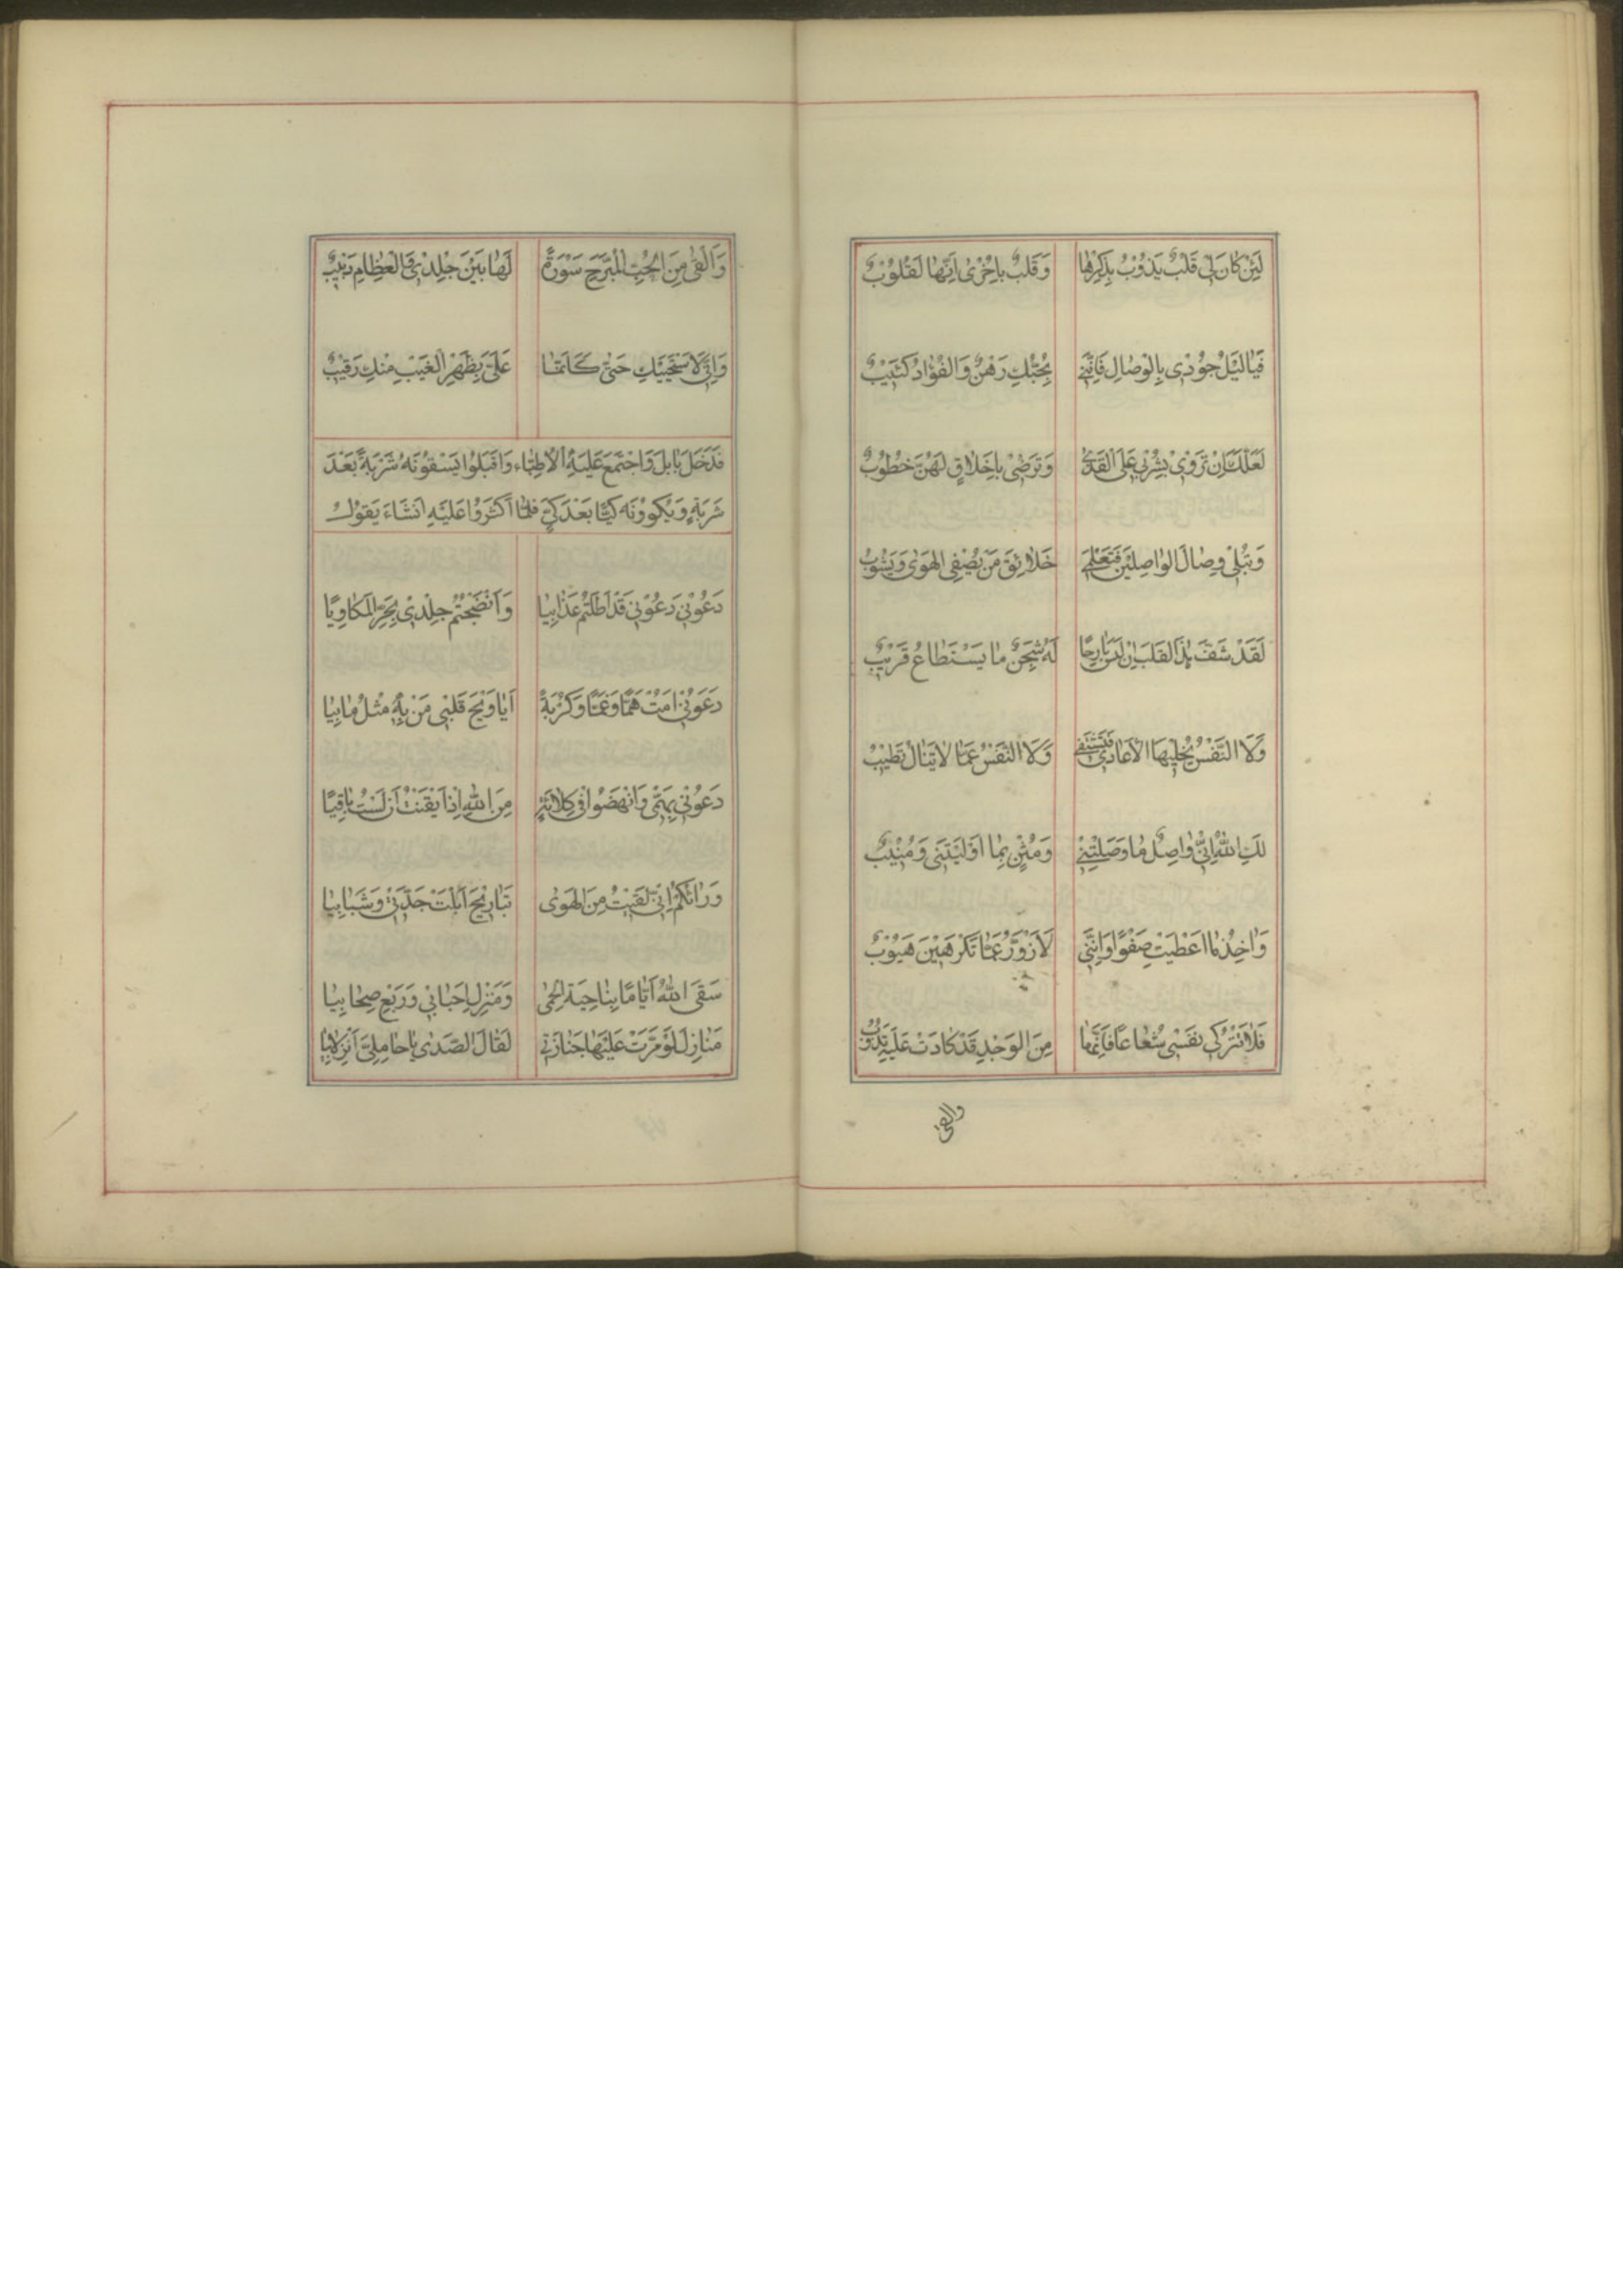 لَئِنْ كَانَ لِى قَلْبٌ يَذُوْبُ بِذِكْرِهَا وَقَلْبٌ بِاُخْرٰى اِنَّهَا لَقُلُوْبٌ
فَيَالَيْلُ جُوْدِى بِالْوِصَالِ فَاِنَّنِىْ بِحُبِّكِ رَهْنٌ وَالفُؤَادُ كَئِيْبٌ
لَعَلَّكَ اِنْ تَرْوٰى بِشُرْبٍ عَلَى القَذٰى وَتَرْضٰى بِاَخْلَاقٍ لَهُنَّ خُطُوْبٌ
وَتُبْلٰى وِصَالَ الوَاصِلِيْنَ فَتَعْلَمِى خَلَائِقَ مَنْ يُصْفِى الهَوٰى وَيَشُوْبُ
لَقَدْ شَفَّ هٰذَا القَلْبَ اِنْ لَيْسَ بَارِحًا لَهُ شَجَنٌ مَا يَسْتَطَاعُ قَرِيْبٌ
وَلَا النَّفْسُ يُخْلِيْهَا الاَعَادِى فَتَشْتَفِى وَلَا النَّفْسُ عَمَّا لَا يَنَالُ تَطِيْبُ
لَكِ اللّٰهُ اِنِّىْ وَاصِلٌ مَا وَصَلْتِنِىْ وَمُثْنٍ بِمَا اَوْلَيْتَنِى وَمُنِيْبٌ
وَاٰخِذُ مَا اَعْطَيْتِ صَفْوًا وَاِنَّنِى لَاَزْوَرُّ عَمَّا تَكْرَهِيْنَ هَيُوْبٌ
فَلَا تَتْرُكِى نَفْسِى شُعَاعًا فَاِنَّهَا مِنَ الوَجْدِ قَدْ كَادَتْ عَلَيْهِ تَذُوْبُ
والقى
وَاَلْقٰى مِنَ الْحُبِّ الْمُبَرِّحِ سَوْرَةً لَهَا بَيْنَ جِلْدِىْ وَالْعِظَامِ دَبِيْبٌ
وَاِنِّى لَاَسْتَحْيِيْكِ حَتّٰى كَاَنَّمَا عَلَىَّ بِظَهْرِ الْغَيْبِ مِنْكِ رَقِيْبٌ
فَدَخَلَ بَابِلَ وَاجْتَمَعَ عَلَيْهِ الْاَطِبَّاء وَاَقْبَلُوا يَسْقُوْنَهُ شَرْبَةً بَعْدَ
شَرْبَةٍ وَيَكْوُوْنَه كَيًّا بَعْدَ كَىٍّ فَلَمَّا اَكْثَرُوا عَلَيْهِ اَنْشَاءَ يَقُوْلُ
دَعُوْنِى دَعُوْنِى قَدْ اَطَلْتُمْ عَذَابِيَا وَاَنْضَجْتُمْ جِلْدِىْ بِحَرِّ الْمَكَاوِيَا
دَعَوْنِىْ اَمُتْ هَمًّا وَغَمًّا وَكُرْبَةً اَيَا وَيْحَ قَلْبِى مَنْ بِهِ مِثْلُ مَا بِيَا
دَعُوْنِى بِهَمِّى وَانْهَضُوا فِى كِلَائَةٍ مِنَ اللّٰهِ اِذْ اَيْقَنْتُ اَنْ لَسْتُ بَاقِيًا
وَرَائَكُمْ اِنِّى لَقِيْتُ مِنَ الهَوٰى تَبَارِيْحَ اَبْلَتْ جِدَّتِىْ وَشَبَابِيَا
سَقَى اللّٰهُ اَيَّامًا بِنَاحِيَةِ الحِمٰى وَمَنْزِلَ اَحْبَابِىْ وَرَبْعِ صِحَابِيَا
مَنَازِلَ لَوْ مَرَّتْ عَلَيْهَا جَنَازَتِى لَقَالَ الصَّدٰى يَا حَامِلَىَّ انْزِلَابِيَا